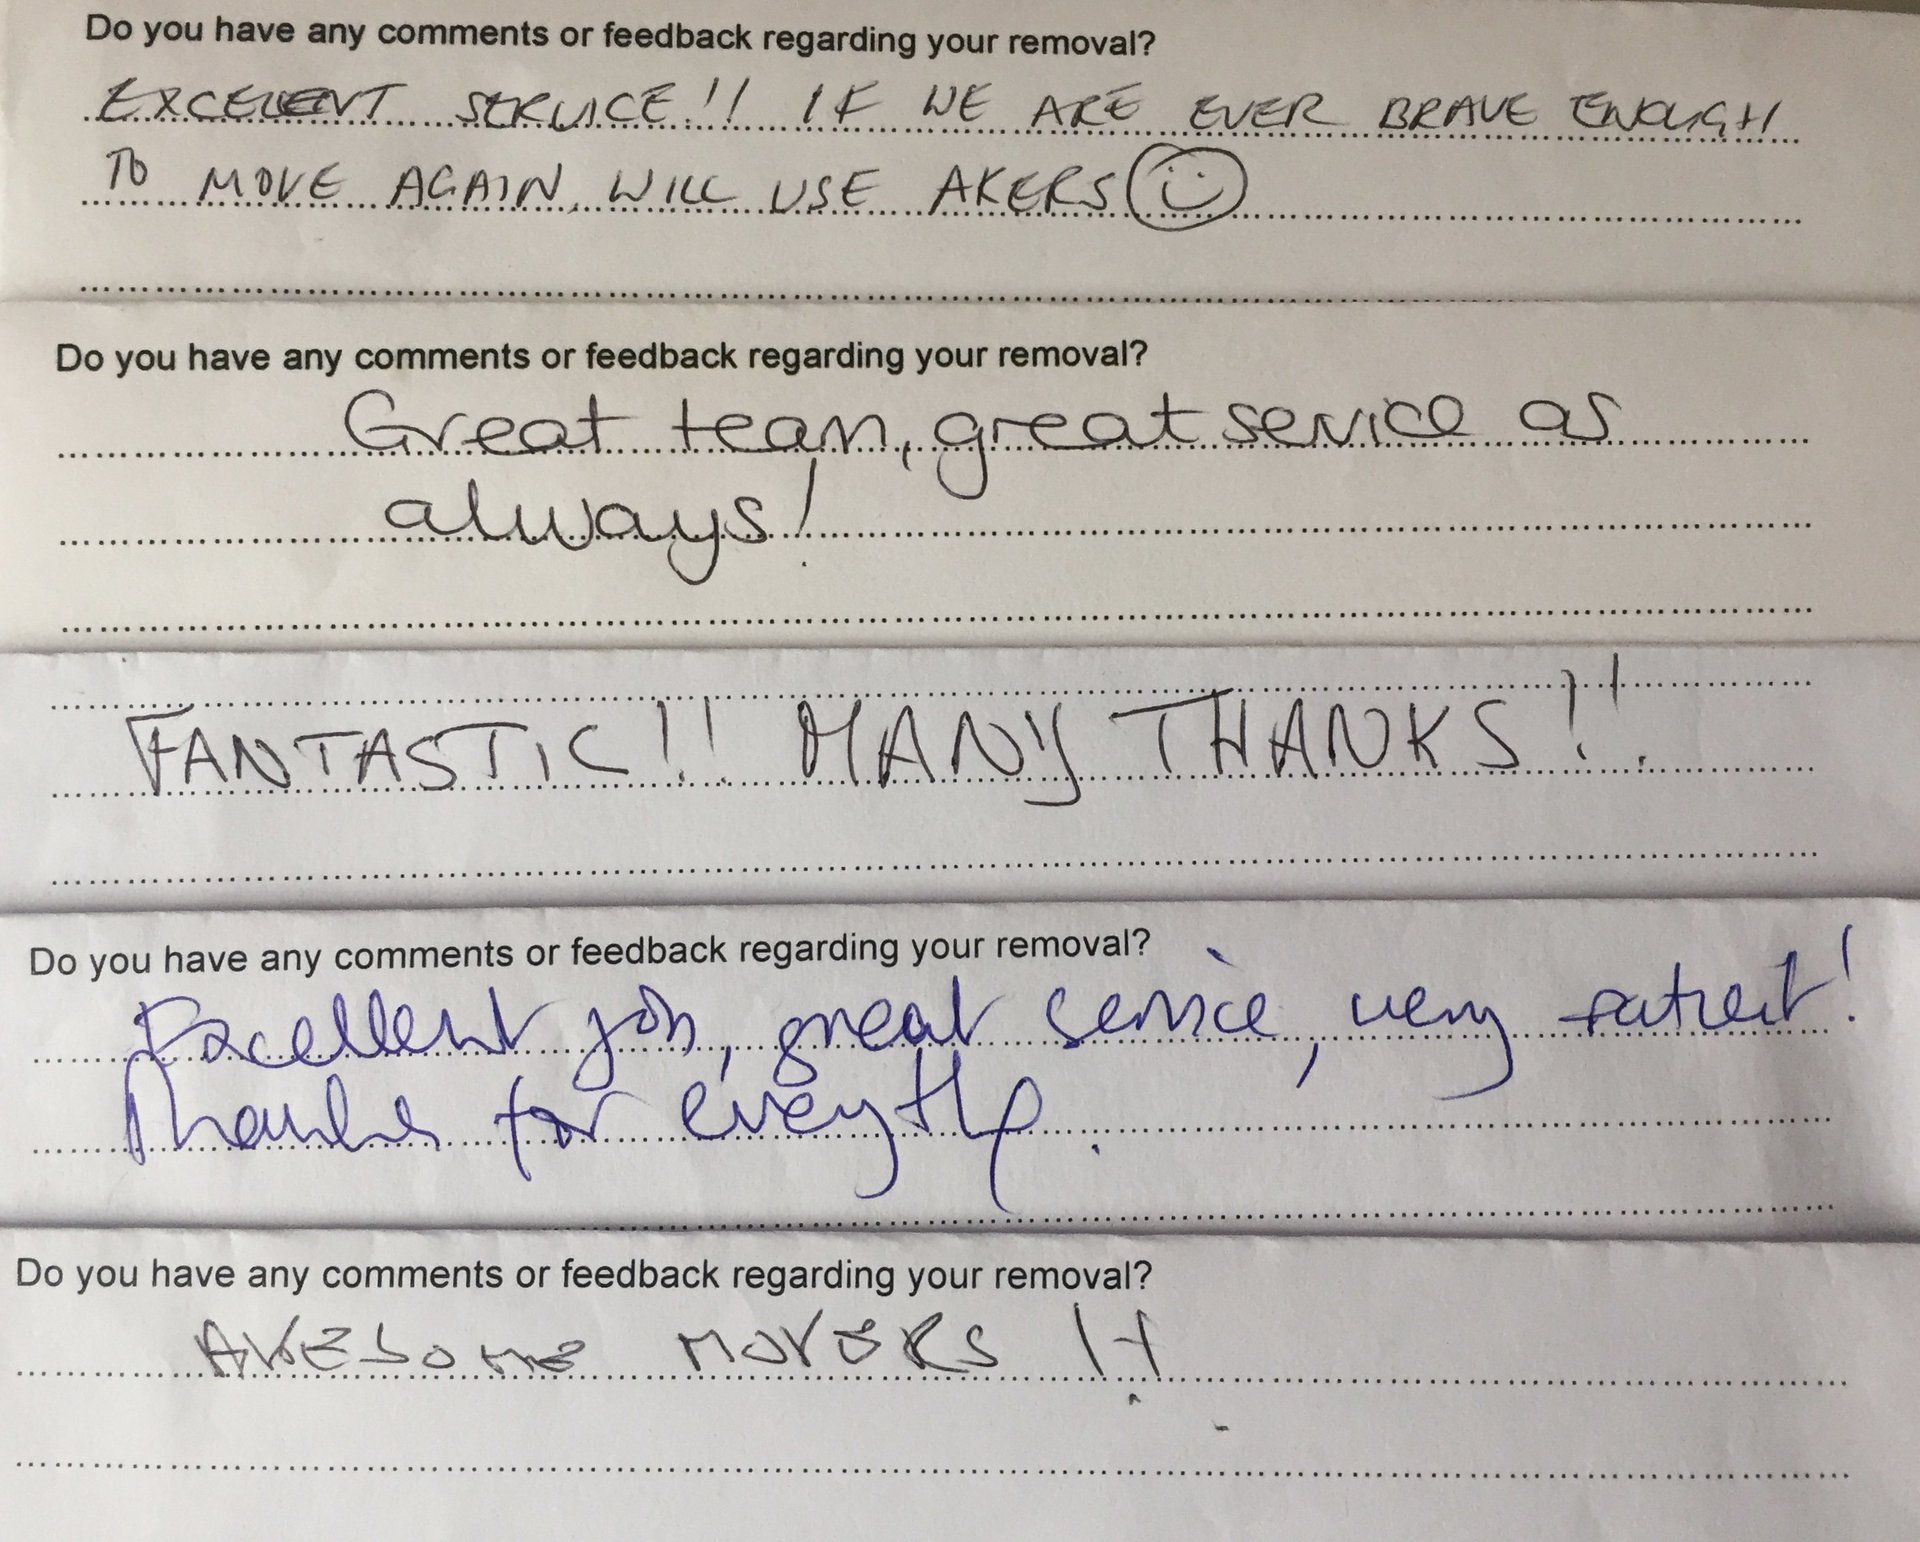 Do you have any comments or feedback regarding your removal?
EXCELLENT SERVICE!! IF WE ARE EVER BRAVE ENOUGH
TO MOVE AGAIN, WILL USE AKERS
Do you have any comments or feedback regarding your removal?
Great team, great service as
always!
FANTASTIC!! MANY THANKS!!
Do you have any comments or feedback regarding your removal?
Excellent job, great service, very patient!
Thanks for
Do you have any comments or feedback regarding your removal?
AWESOME MOVERS !!